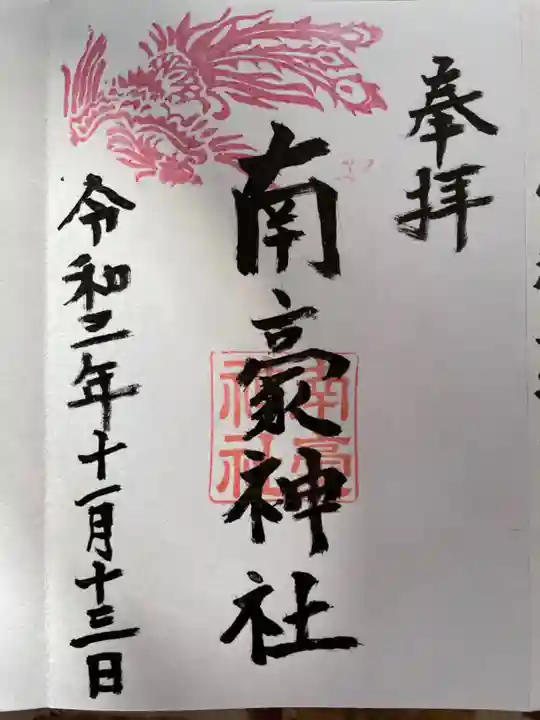 奉拝
南豪神社
南豪神社
令和二年十一月十三日